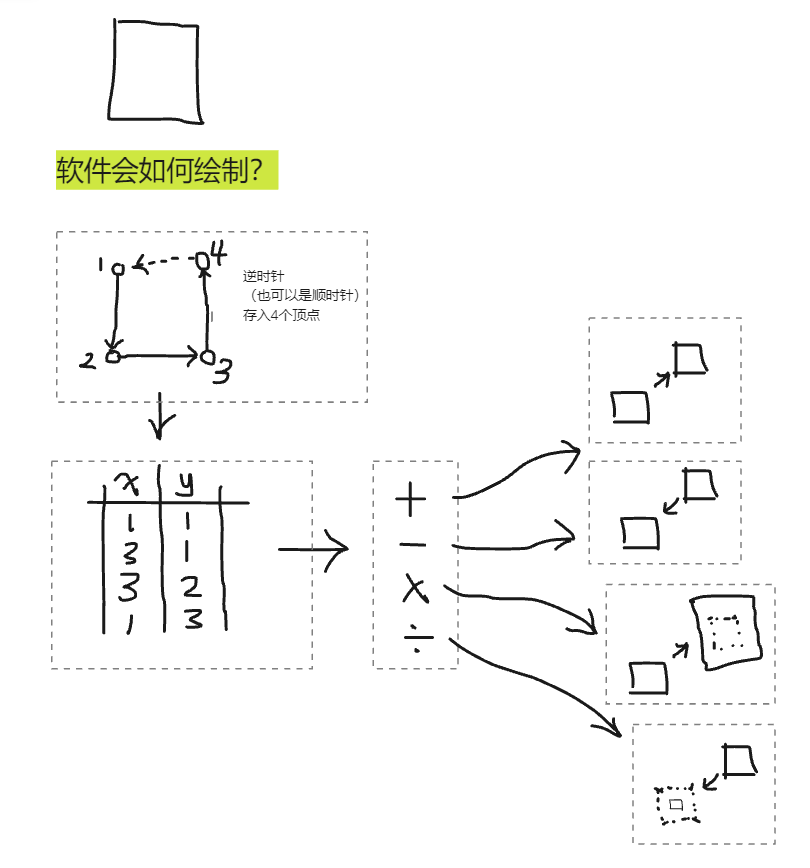 软件会如何绘制？
1
4
逆时针
（也可以是顺时针）
存入4个顶点
2
3
x y
1 1
3 1
3 2
1 3
+
−
×
÷